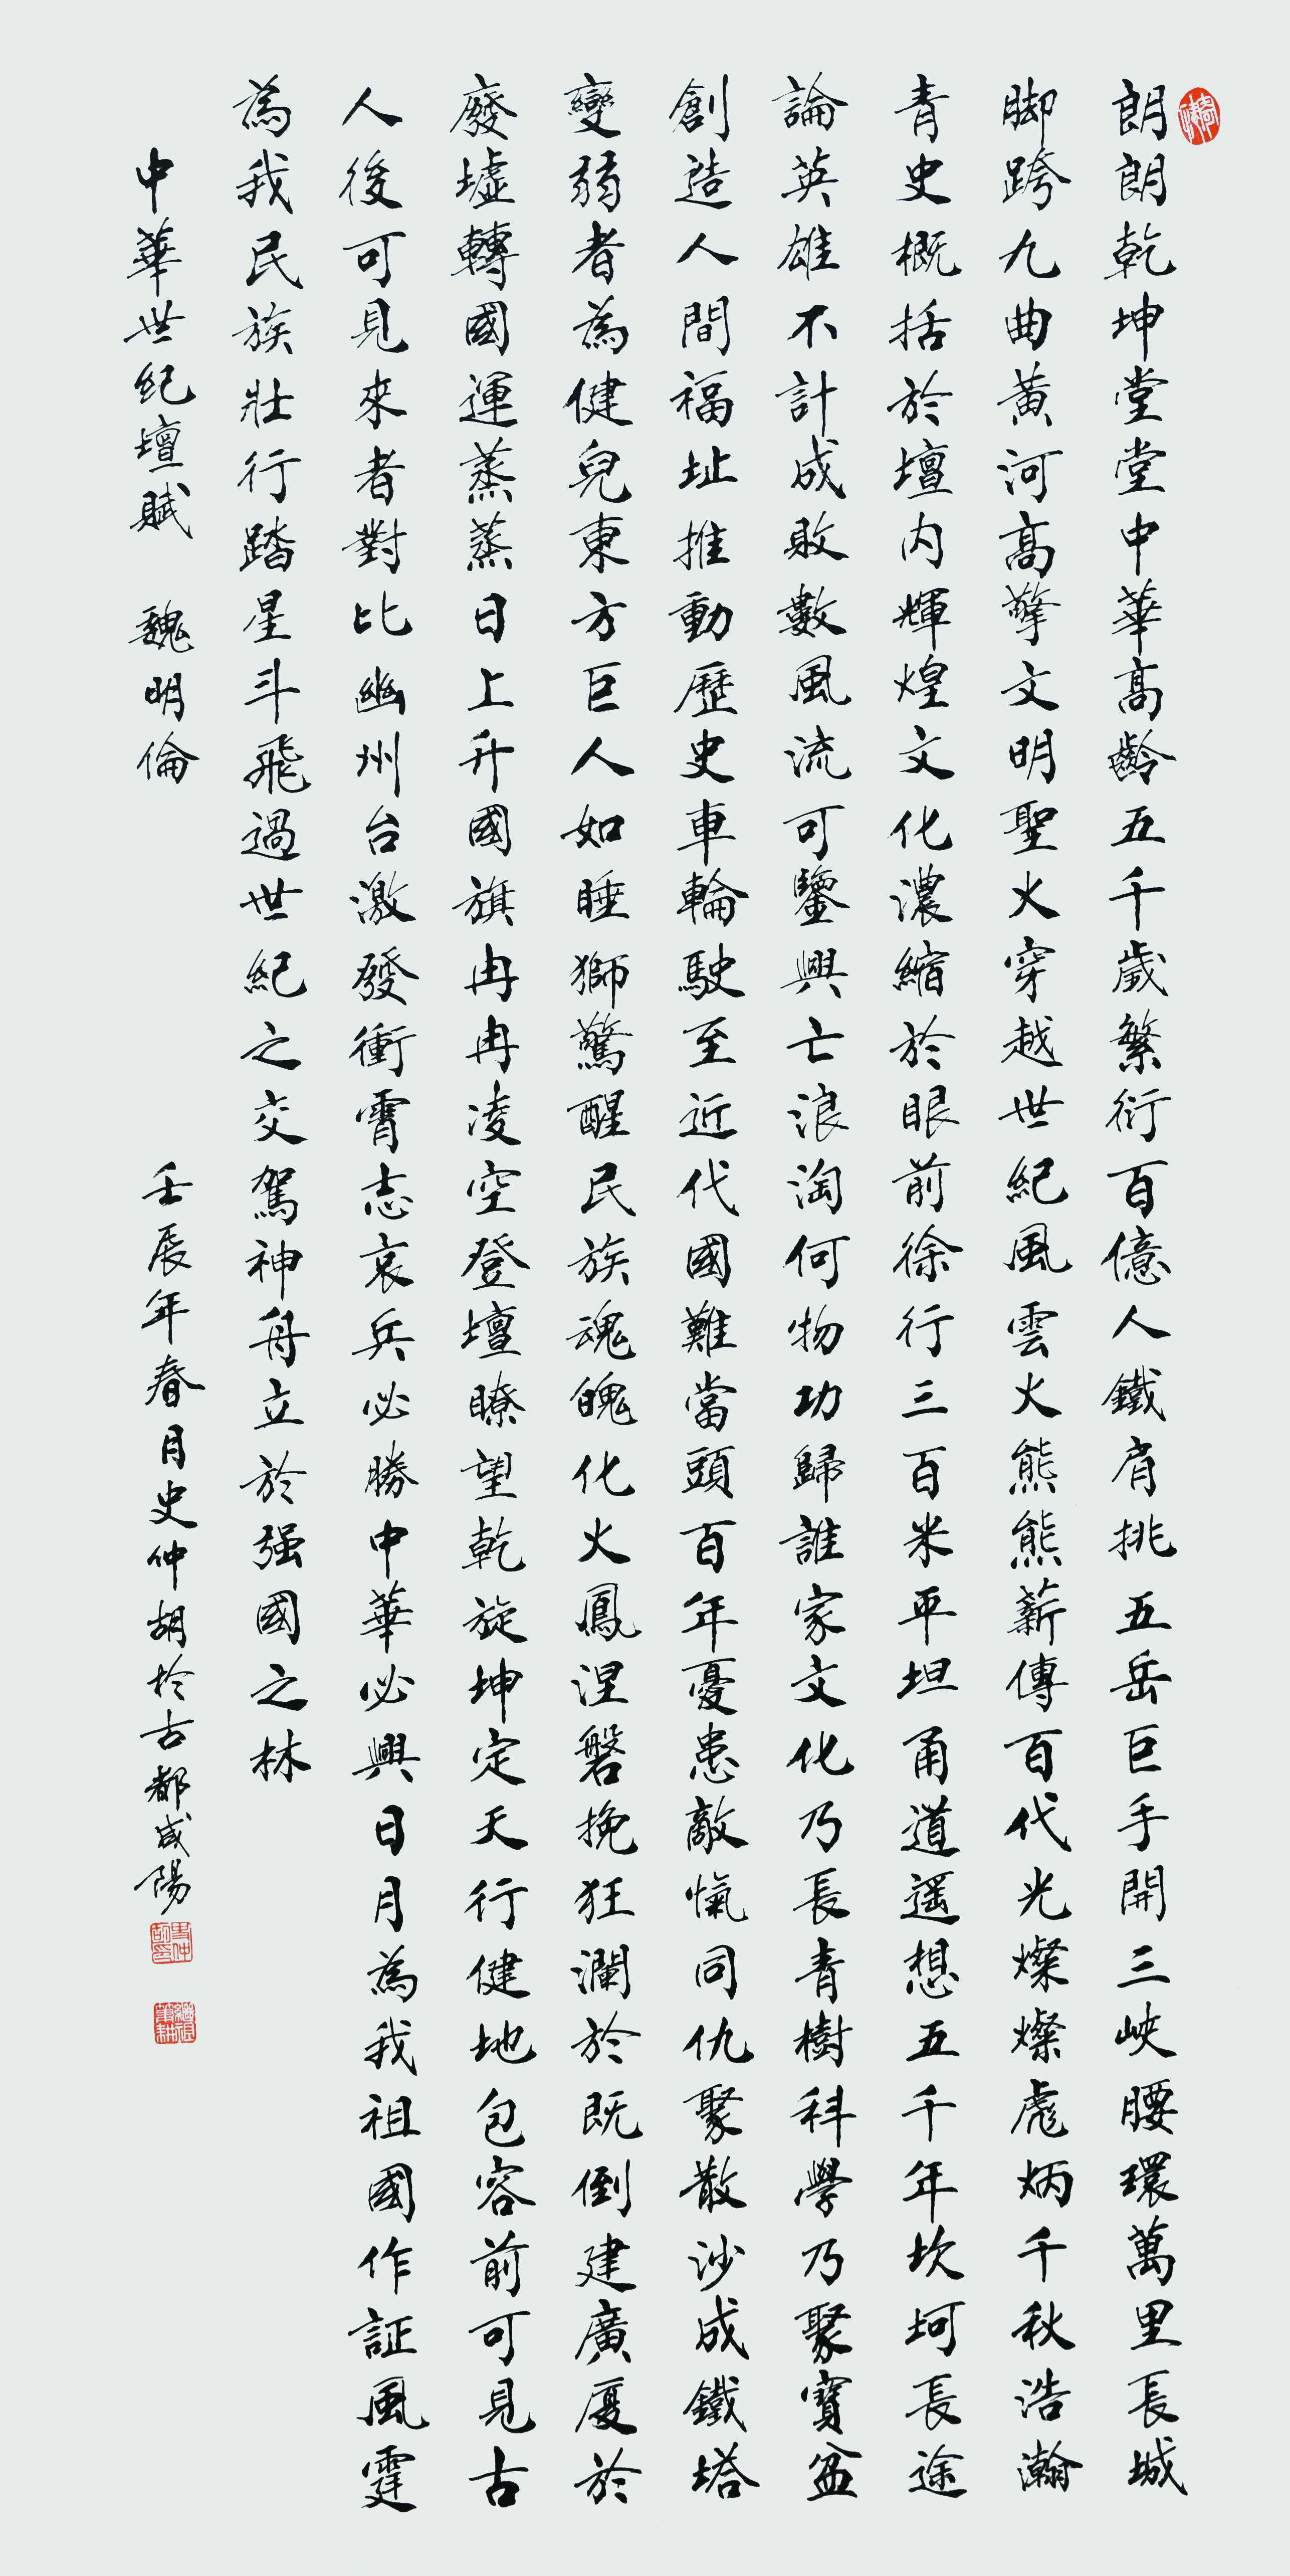 朗朗乾坤堂堂中華高齡五千歲繁衍百億人鐵肩挑五岳巨手開三峽腰環萬里長城
脚跨九曲黃河高擎文明聖火穿越世紀風雲火熊熊薪傳百代光燦燦彪炳千秋浩瀚
青史概括於壇内輝煌文化濃縮於眼前徐行三百米平坦甬道遥想五千年坎坷長途
論英雄不計成敗數風流可鑒興亡浪淘何物功歸誰家文化乃長青樹科學乃聚寶盆
創造人間福址推動歷史車輪駛至近代國難當頭百年憂患敵愾同仇聚散沙成鐵塔
變弱者為健兒東方巨人如睡獅驚醒民族魂魄化火鳳涅磐挽狂瀾於既倒建廣廈於
廢墟轉國運蒸蒸日上升國旗冉冉凌空登壇瞭望乾旋坤定天行健地包容前可見古
人後可見來者對比幽州台激發衝霄志哀兵必勝中華必興日月為我祖國作証風霆
為我民族壯行踏星斗飛過世紀之交駕神舟立於强國之林
中華世紀壇賦 魏明倫 壬辰年春月史仲胡於古都咸陽